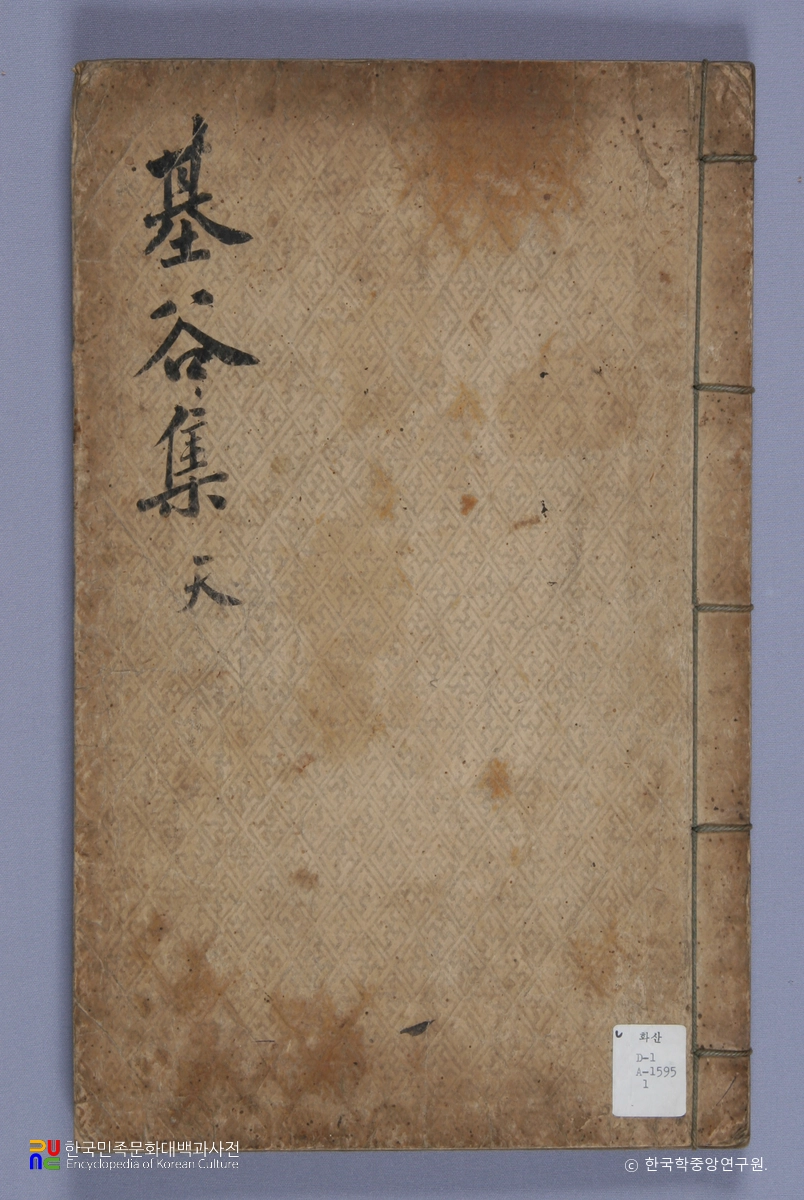 基谷集 天
화산
D-1
A-1595
1
한국민족문화대백과사전
Encyclopedia of Korean Culture
ⓒ 한국학중앙연구원.